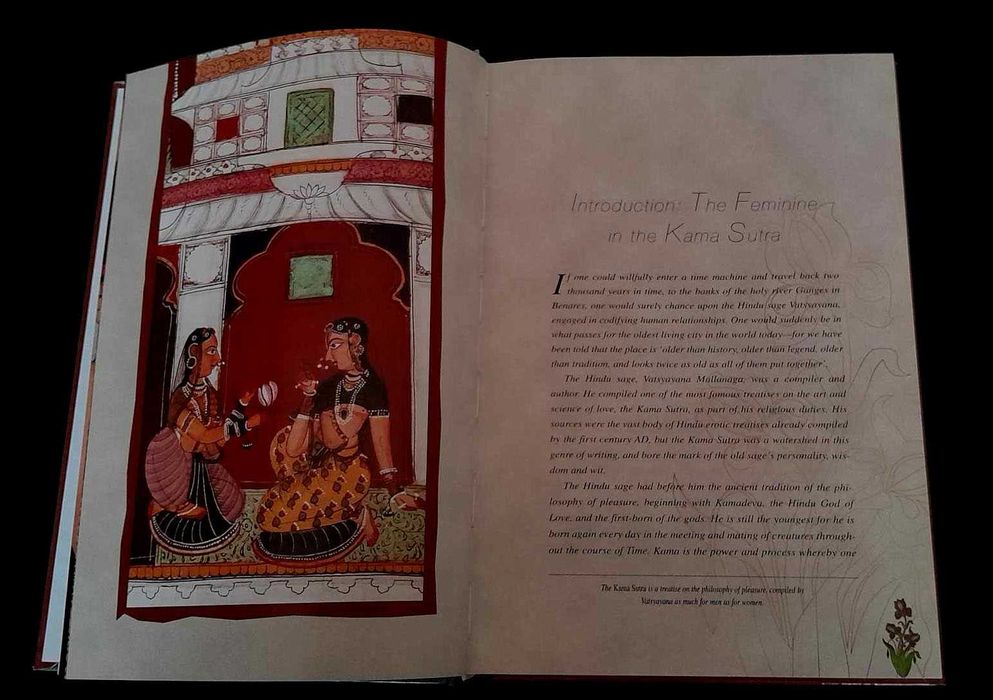 Introduction: The Feminine
in the Kama Sutra
If one could willfully enter a time machine and travel back two
thousand years in time, to the banks of the holy river Ganges in
Benares, one would surely chance upon the Hindu sage Vatsyayana,
engaged in codifying human relationships. One would suddenly be in
what passes for the oldest living city in the world today—for we have
been told that the place is 'older than history, older than legend, older
than tradition, and looks twice as old as all of them put together'.
The Hindu sage, Vatsyayana Mallanaga, was a compiler and
author. He compiled one of the most famous treatises on the art and
science of love, the Kama Sutra, as part of his religious duties. His
sources were the vast body of Hindu erotic treatises already compiled
by the first century AD, but the Kama Sutra was a watershed in this
genre of writing, and bore the mark of the old sage's personality, wis-
dom and wit.
The Hindu sage had before him the ancient tradition of the phi-
losophy of pleasure, beginning with Kamadeva, the Hindu God of
Love, and the first-born of the gods. He is still the youngest for he is
born again every day in the meeting and mating of creatures through-
out the course of Time. Kama is the power and process whereby one
The Kama Sutra is a treatise on the philosophy of pleasure, compiled by
Vatsyayana as much for men as for women.